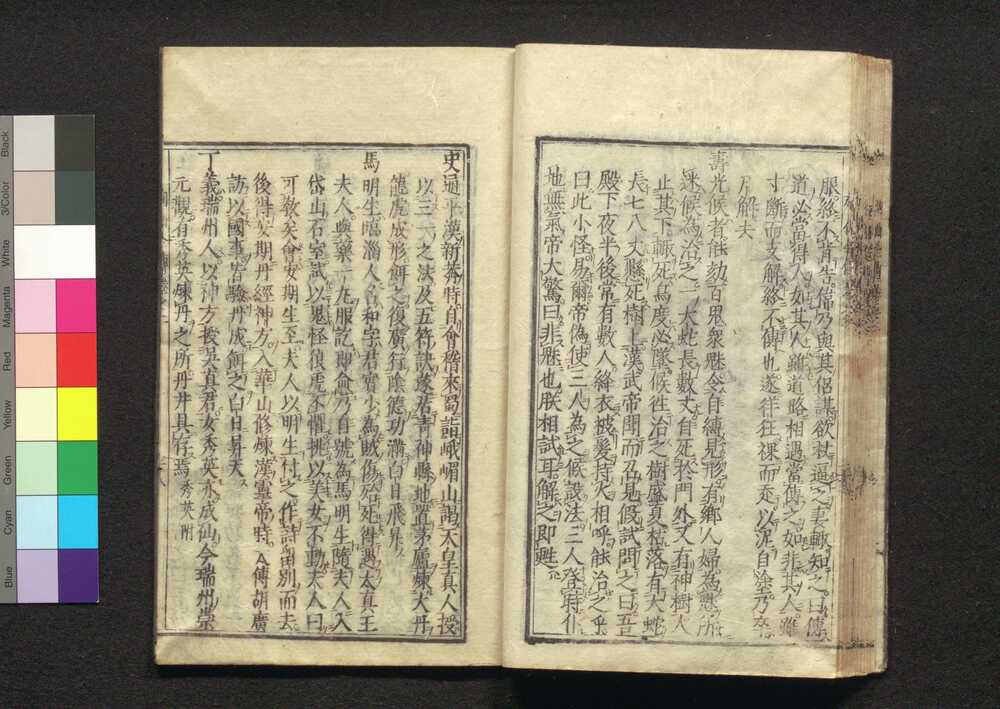 服終不肯生傳乃與其侶謀欲杖逼之妻輙知之曰傳
道必當得人如其人雖道路相遇當傳之如非其人雖
寸斷而支解終不傳也遂徃徃祼而走以泥自塗乃卒
尸解夫
壽光候者能劾百鬼衆魅令自縛見形有鄉人婦為魅所
候為治之一大蛇長數丈自死於門外又有神樹人
止其下輙死鳥度必墜候徃治之樹盛夏枯落有大蛇
長七八丈懸死樹上漢武帝聞而召見假試問之曰吾
殿下夜半後常有數人絳衣被髮持火相呼能治之乎
曰此小怪易爾帝偽使三人為之候設法三人登時仆
地無氣帝大驚曰非魅也朕相試耳解之即甦
史通平漢新莽時自會稽來蜀詣峨嵋山謁天皇真人授
以三一之法及五符訣遂居青神縣地置茅廬煉大丹
龍虎成形餌之後廣行陰德功滿白日飛昇
馬明生臨淄人本名和字君實少為賊傷殆死徃遇太真王
夫人與藥一丸服訖即愈乃自號為馬明生隨夫人入
岱山石室試以鬼怪俍虎不懼挑以美女不動夫人曰
可教矣會安期生至夫人以明生付之作詩留別而去
後得安期丹經神方入華山修煉漢靈帝時太傅胡廣
訪以國事皆驗丹成餌之白日昇天
丁義瑞州人以神方授吳真君女秀英亦成仙今瑞州崇
元觀有秀英煉丹之所丹井具存焉秀英附
Blue
Cyan
Green
Yellow
Red
Magenta
White
3/Color
Black